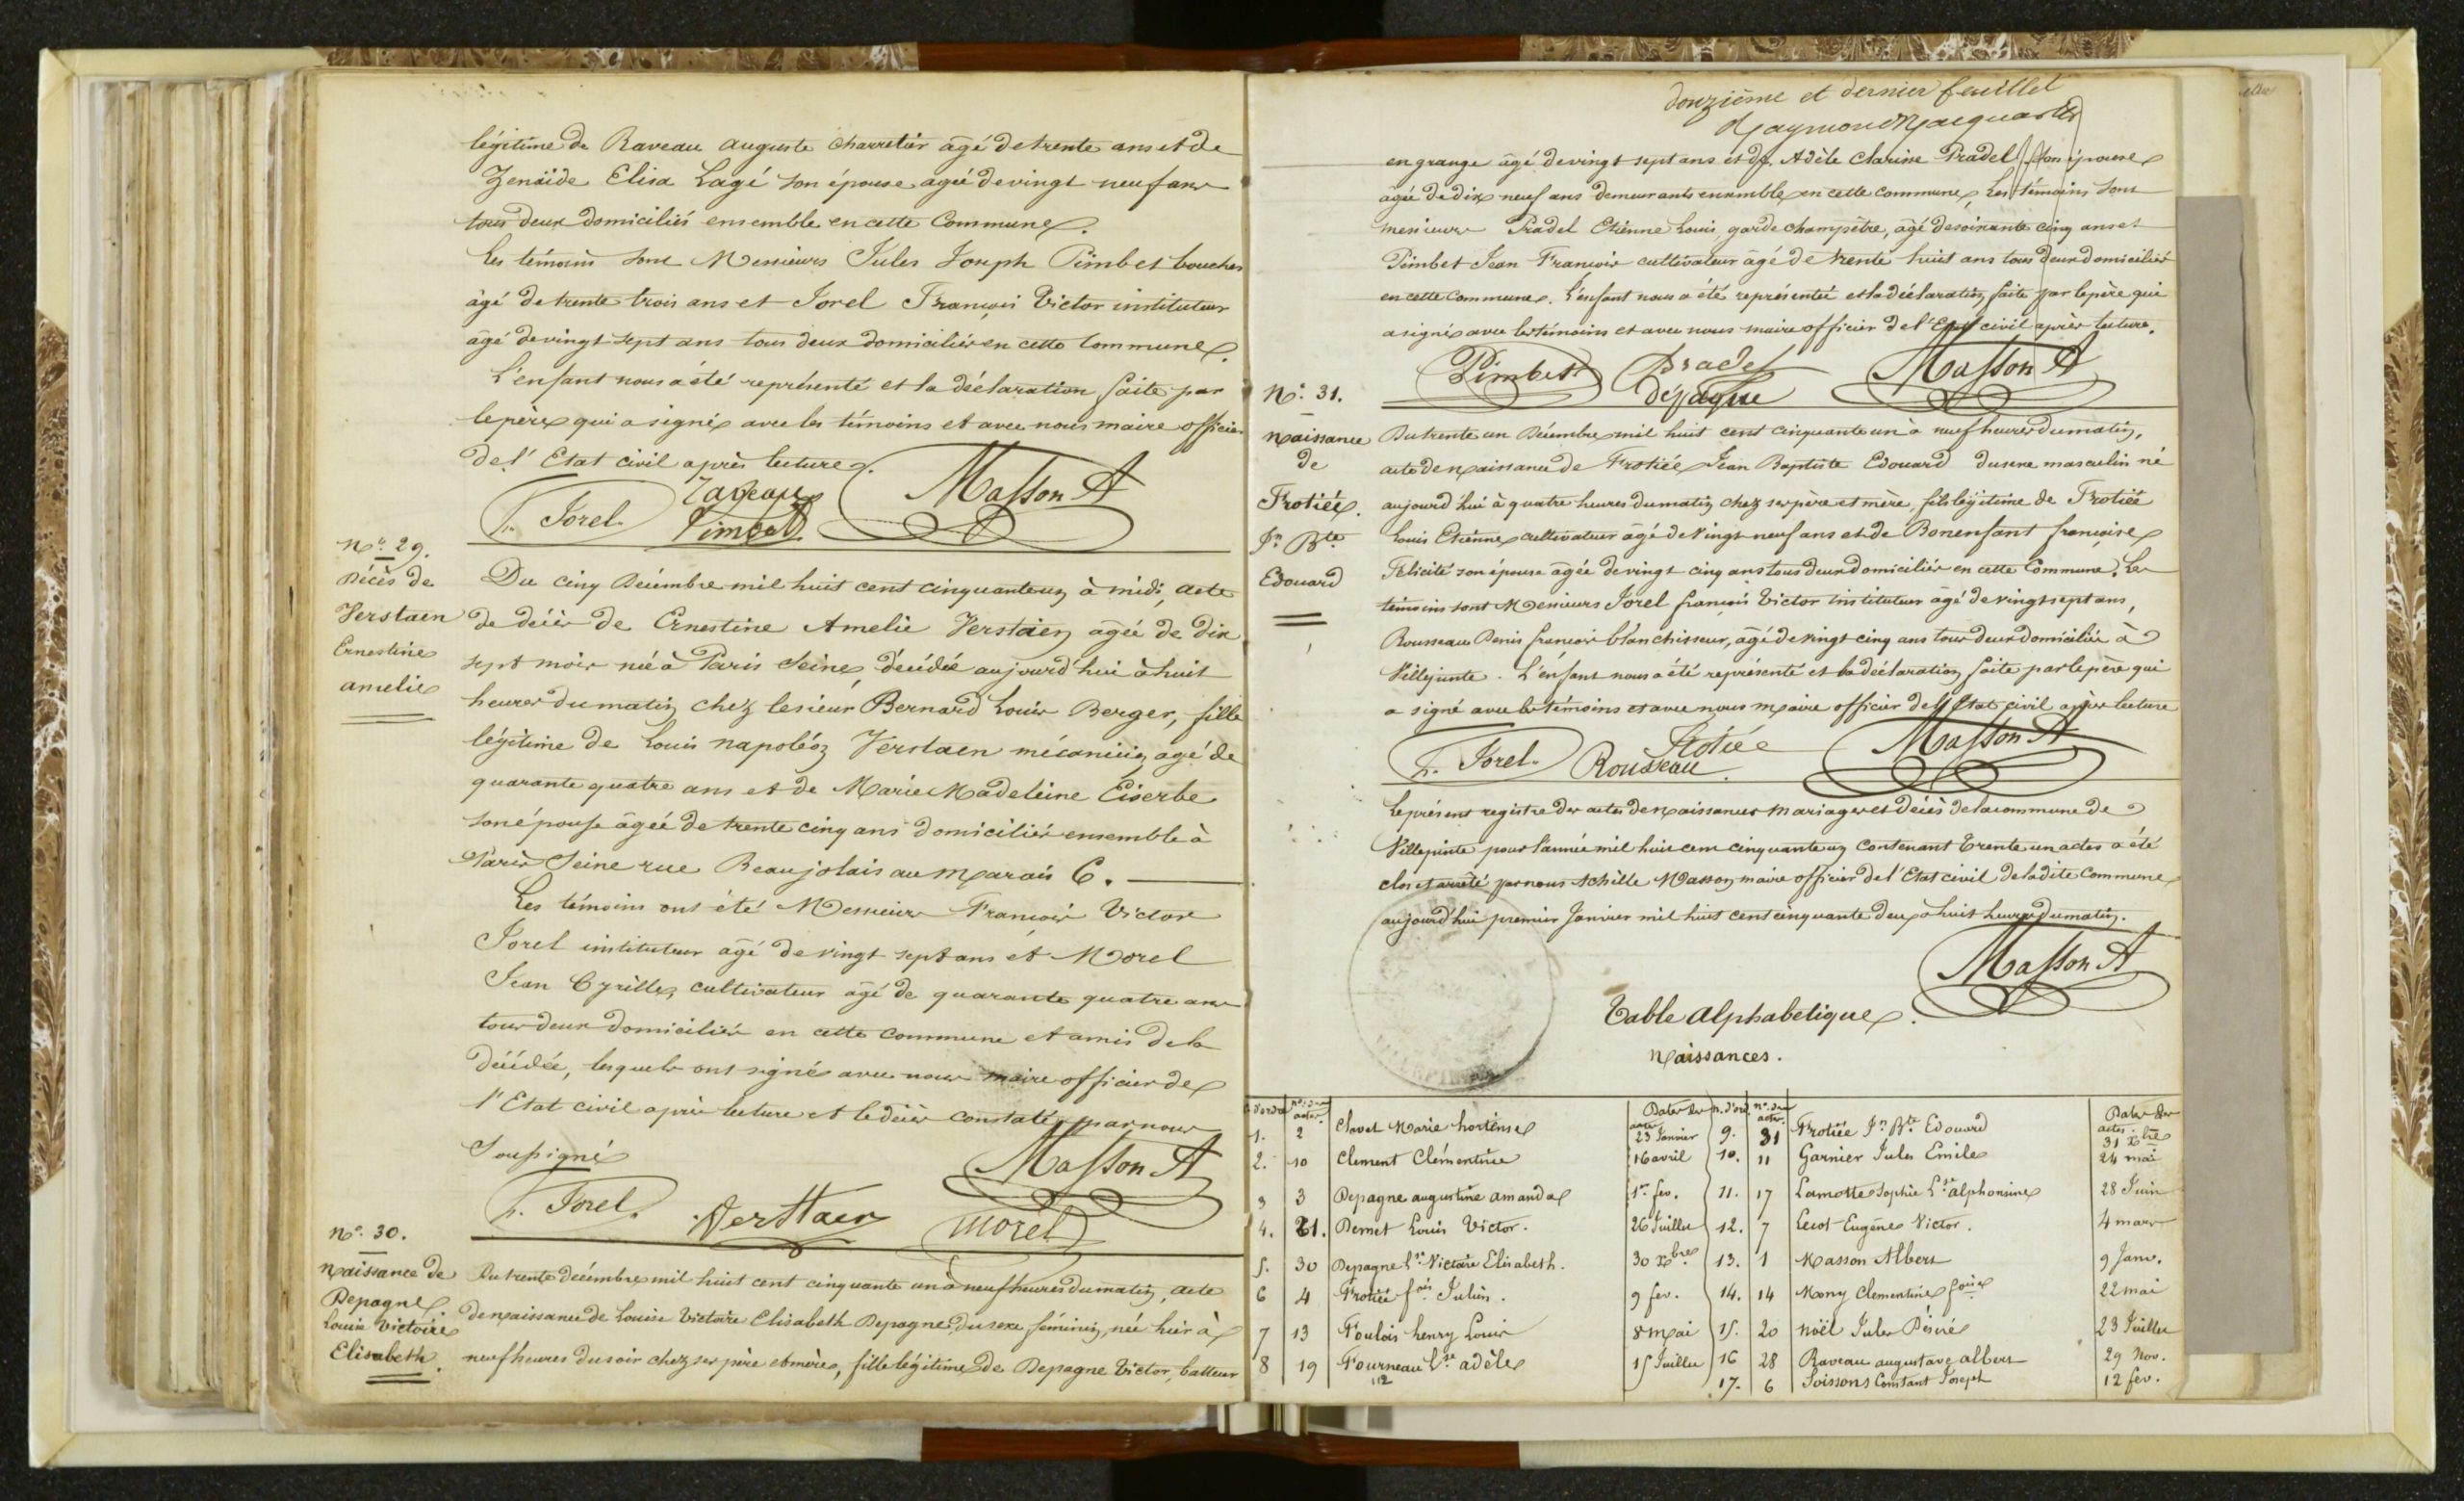 légitime de Raveau Auguste charretier âgé de trente ans et de
Zenaïde Elisa Lagé son épouse agée de vingt neuf ans
tous deux domiciliés ensemble en cette Commune.
les témoins sont Messieurs Jules Joseph Pimbet boucher
âgé de trente trois ans et Jorel François Victor instituteur
âgé de vingt sept ans tous deux domiciliés en cette Commune.
L'enfant nous a été représenté et la déclaration faite par
le père qui a signé avec les témoins et avec nous maire officier
de l'Etat civil après lecture.
F. Jorel Raveau Pimbet Masson A
No. 29.
Décès de
Verstaen
Ernestine
amelie
Du cinq Décembre mil huit cent cinquante un à midi, acte
de décès de Ernestine Amelie Verstaen âgée de dix
sept mois née à Paris Seine, décédée aujourd'hui à huit
heures du matin chez le sieur Bernard Louis Berger, fille
légitime de Louis napoléon Verstaen mécanicien âgé de
quarante quatre ans et de Marie Madeleine Eiserbe
son épouse âgée de trente cinq ans domiciliés ensemble à
Paris Seine rue Beaujolais au Marais 6.
Les témoins ont été Messieurs François Victor
Jorel instituteur âgé de vingt sept ans et Morel
Jean Cyrille, cultivateur âgé de quarante quatre ans
tous deux domiciliés en cette commune et amis de la
décédée, lesquels ont signé avec nous maire officier de
l'Etat civil après lecture et le décès constaté par nous
Soussigné
Masson A
F. Jorel. Verstaen Morel
No. 30.
Naissance de
Depagne.
Louise Victoire
Elisabeth.
Du trente décembre mil huit cent cinquante un à neuf heures du matin, acte
de naissance de Louise Victoire Elisabeth Depagne, du sexe féminin, née hier à
neuf heures du soir chez ses père et mère, fille légitime de Depagne Victor, batteur
douzième et dernier feuillet
en grange âgé de vingt sept ans et de Adèle Clarine Pradel son épouse
agée de dix neuf ans demeurants ensemble en cette commune, Les témoins sont
messieurs Pradel Etienne Louis, garde champêtre, âgé de soixante cinq ans et
Pimbet Jean François cultivateur âgé de trente huit ans tous deux domiciliés
en cette commune. L'enfant nous a été représenté et la déclaration faite par le père qui
a signé avec les témoins et avec nous maire officier de l'Etat civil après lecture.
Pimbet Pradel Masson A
dépagne
No. 31.
Naissance
de
Frotiée.
Jn Bte
Edouard
Du trente un Décembre mil huit cent cinquante un à neuf heures du matin,
acte de naissance de Frotiée Jean Baptiste Edouard du sexe masculin né
aujourd'hui à quatre heures du matin chez ses père et mère, fils légitime de Frotiée
Louis Etienne cultivateur âgé de vingt neuf ans et de Bonenfant françoise
Félicité son épouse âgée de vingt cinq ans tous deux domiciliés en cette Commune. Les
témoins sont Messieurs Jorel françois Victor instituteur âgé de vingt sept ans,
Rousseau Denis françois blanchisseur, âgé de vingt cinq ans tous deux domiciliés à
Villepinte. L'enfant nous a été représenté et la déclaration faite par le père qui
a signé avec les témoins et avec nous maire officier de l'Etat civil après lecture
F. Jorel. Rousseau Frotiée Masson A
Le présent registre des actes de naissances mariages et décès de la commune de
Villepinte pour l'année mil huit cent cinquante un contenant trente un actes a été
clos et arrêté par nous Achille Masson maire officier de l'Etat civil de la dite Commune
aujourd'hui premier Janvier mil huit cent cinquante deux à huit heures du matin.
Masson A
Table Alphabétique.
Naissances.
d'ordre No. des actes Dates des actes n. d'ord. no. des actes Dates des actes
1. 2 Clavet Marie hortense 23 Janvier 9. 31 Frotiée Jn Bte Edouard 31 Xbre
2. 10 Clement Clémentine 16 avril 10. 11 Garnier Jules Emile 24 mai
3 3 Depagne augustine amanda 1er fev. 11. 17 Lamotte Sophie Lse alphonsine 28 Juin
4. 21. Demet Louis Victor. 26 Juillet 12. 7 Lecot Eugène Victor. 4 mars
5. 30 Depagne Lse Victoire Elisabeth. 30 Xbre. 13. 1 Masson Albert 9 Janv.
6 4 Frotiée fois Julien. 9 fev. 14. 14 Mony Clementine foise 22 mai
7 13 Foulois henry Louis 8 mai 15. 20 Noël Jules Désiré 23 Juillet
8 19 Fourneau Lse adèle 15 Juillet 16 28 Raveau augustave albert 29 Nov.
17. 6 Soissons Constant Joseph 12 fev.
112